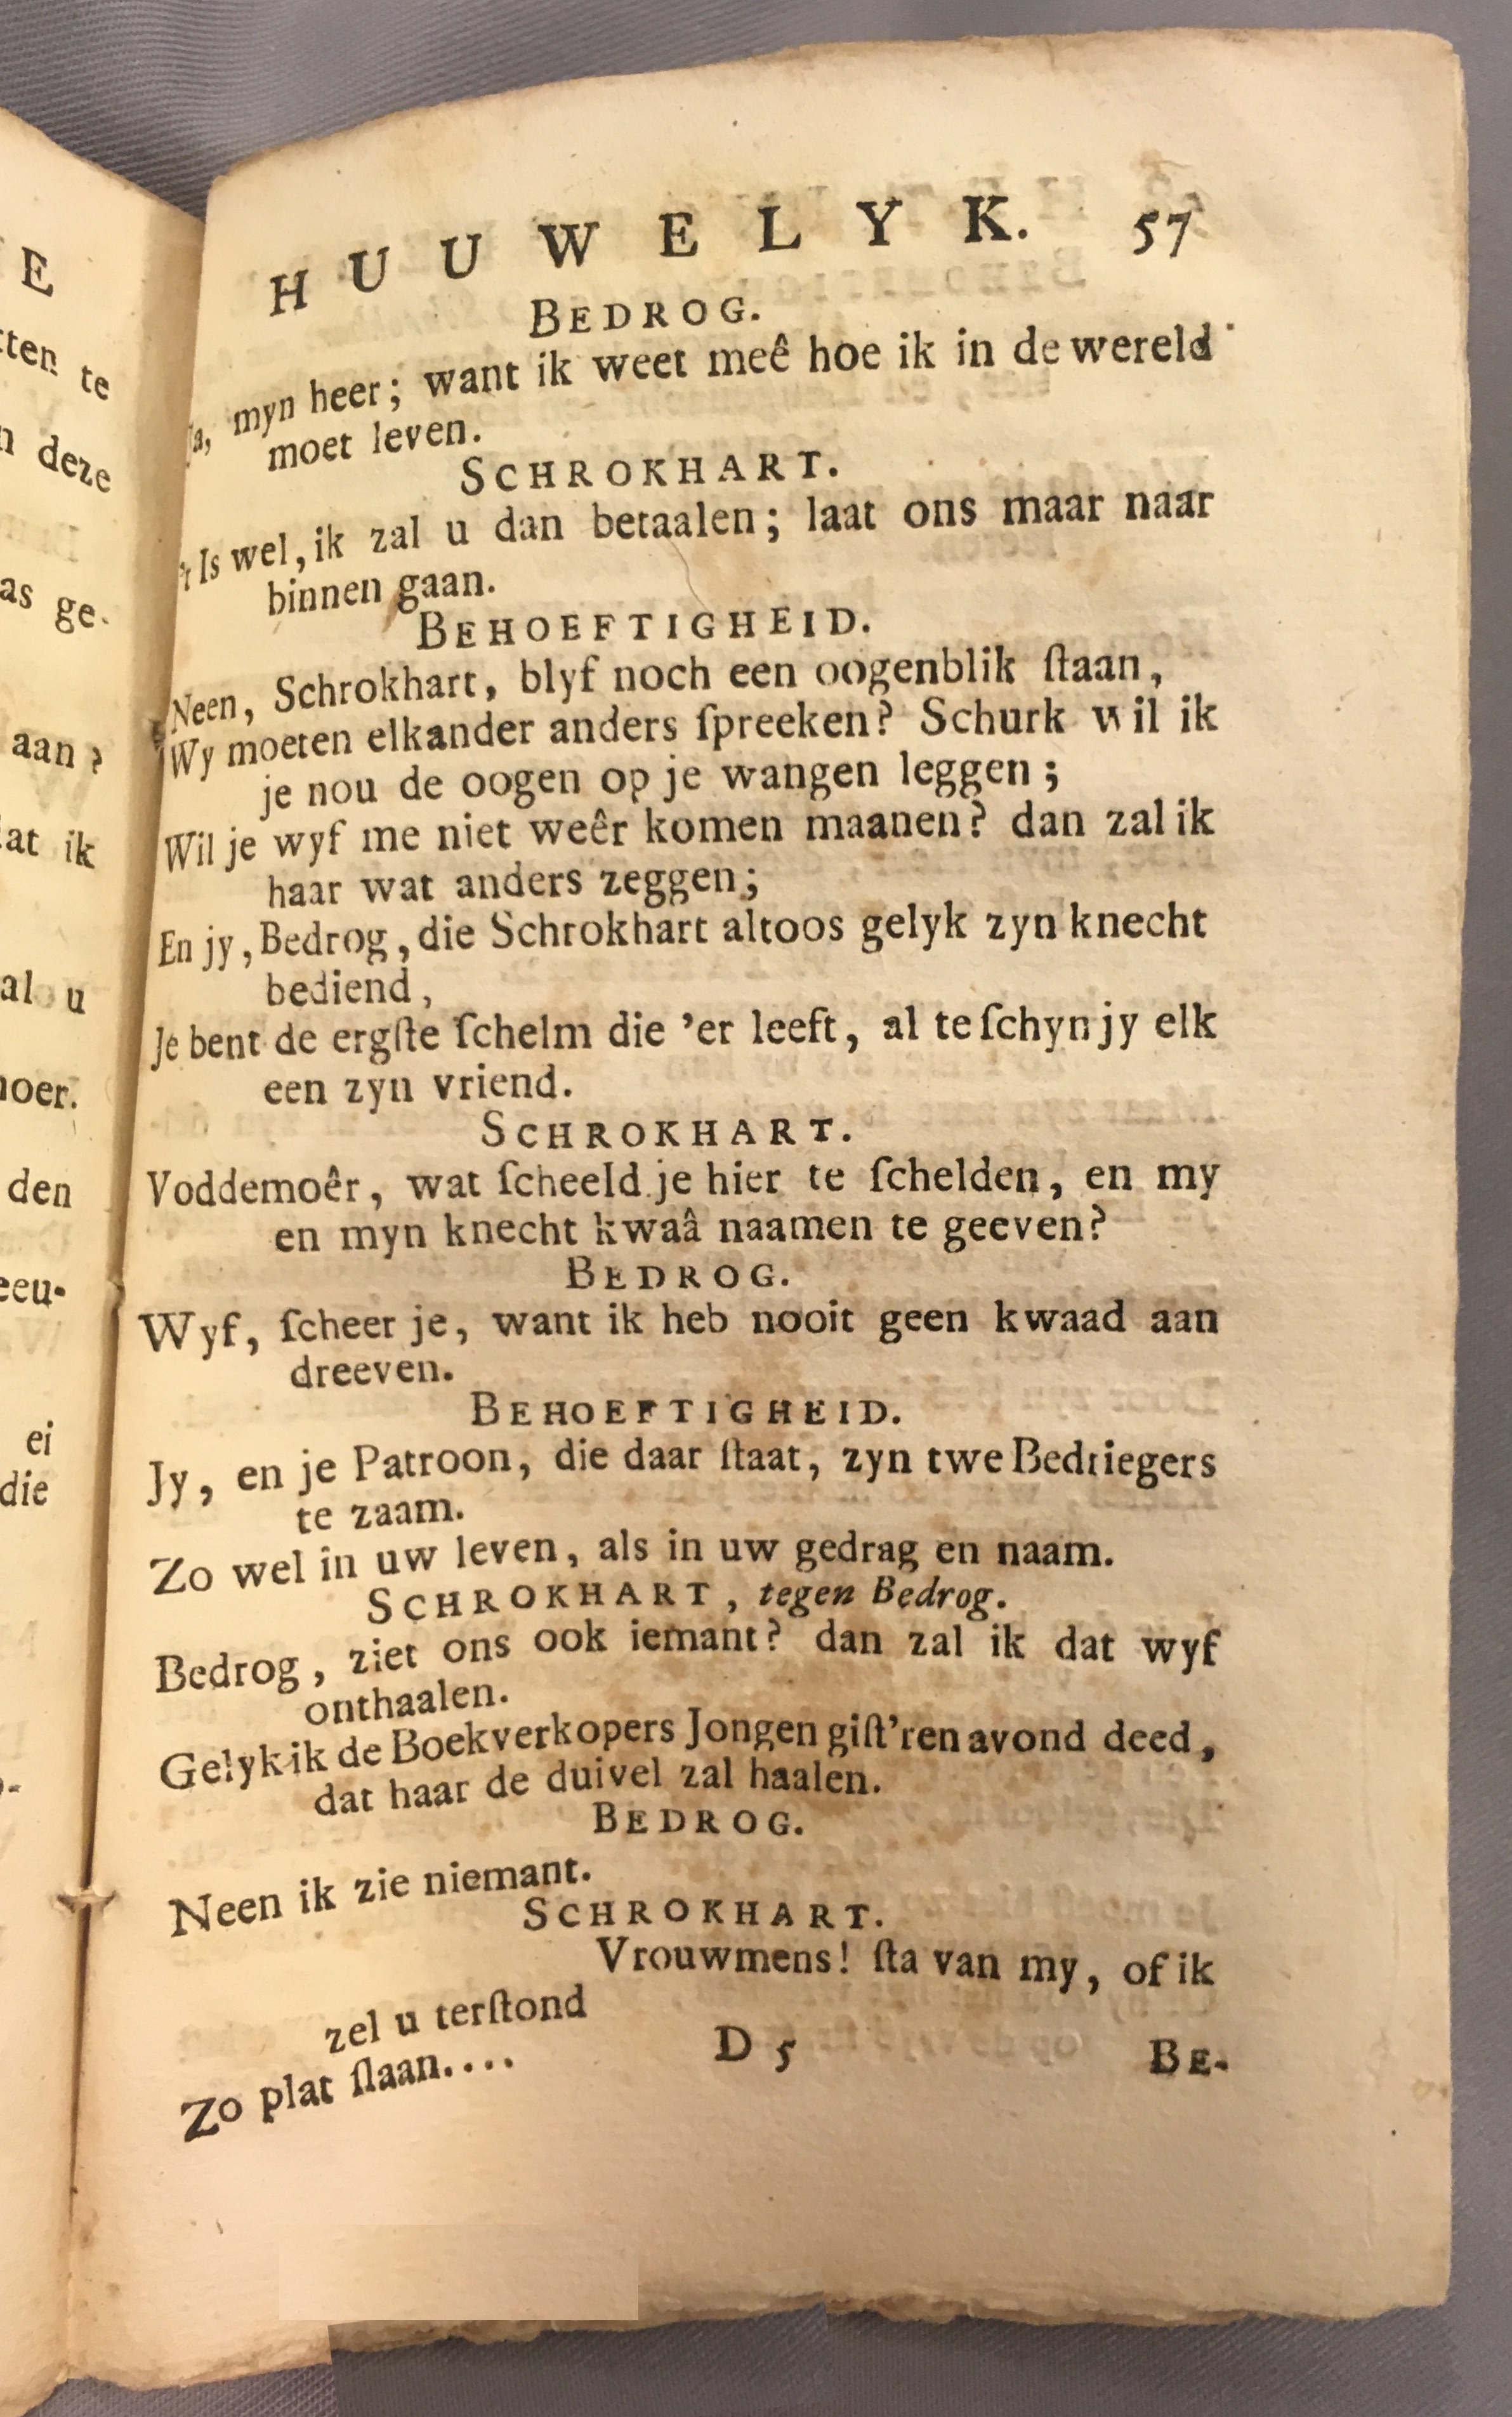 E
te
deze
as ge-
aan?
ik
u
den
ei
die
HUUWELYK. 57
BEDROG.
Ja, myn heer; want ik weet meê hoe ik in de wereld
moet leven.
SCHROKHART.
't Is wel, ik zal u dan betaalen; laat ons maar naar
binnen gaan.
BEHOEFTIGHEID.
Neen, Schrokhart, blyf noch een oogenblik ſtaan,
Wy moeten elkander anders ſpreeken? Schurk wil ik
je nou de oogen op je wangen leggen;
Wil je wyf me niet weêr komen maanen? dan zal ik
haar wat anders zeggen;
En jy, Bedrog, die Schrokhart altoos gelyk zyn knecht
bediend,
Je bent de ergſte ſchelm die 'er leeft, al te ſchyn jy elk
een zyn vriend.
SCHROKHART.
Voddemoêr, wat ſcheeld je hier te ſchelden, en my
en myn knecht kwaâ naamen te geeven?
BEDROG.
Wyf, ſcheer je, want ik heb nooit geen kwaad aan
dreeven.
BEHOEFTIGHEID.
Jy, en je Patroon, die daar ſtaat, zyn twe Bedriegers
te zaam.
Zo wel in uw leven, als in uw gedrag en naam.
SCHROKHART, tegen Bedrog.
Bedrog, ziet ons ook iemant? dan zal ik dat wyf
onthaalen.
Gelyk ik de Boekverkopers Jongen giſt'ren avond deed,
dat haar de duivel zal haalen.
BEDROG.
Neen ik zie niemant.
SCHROKHART.
Vrouwmens! ſta van my, of ik
zel u terſtond
Zo plat ſlaan....
D 5 BE-